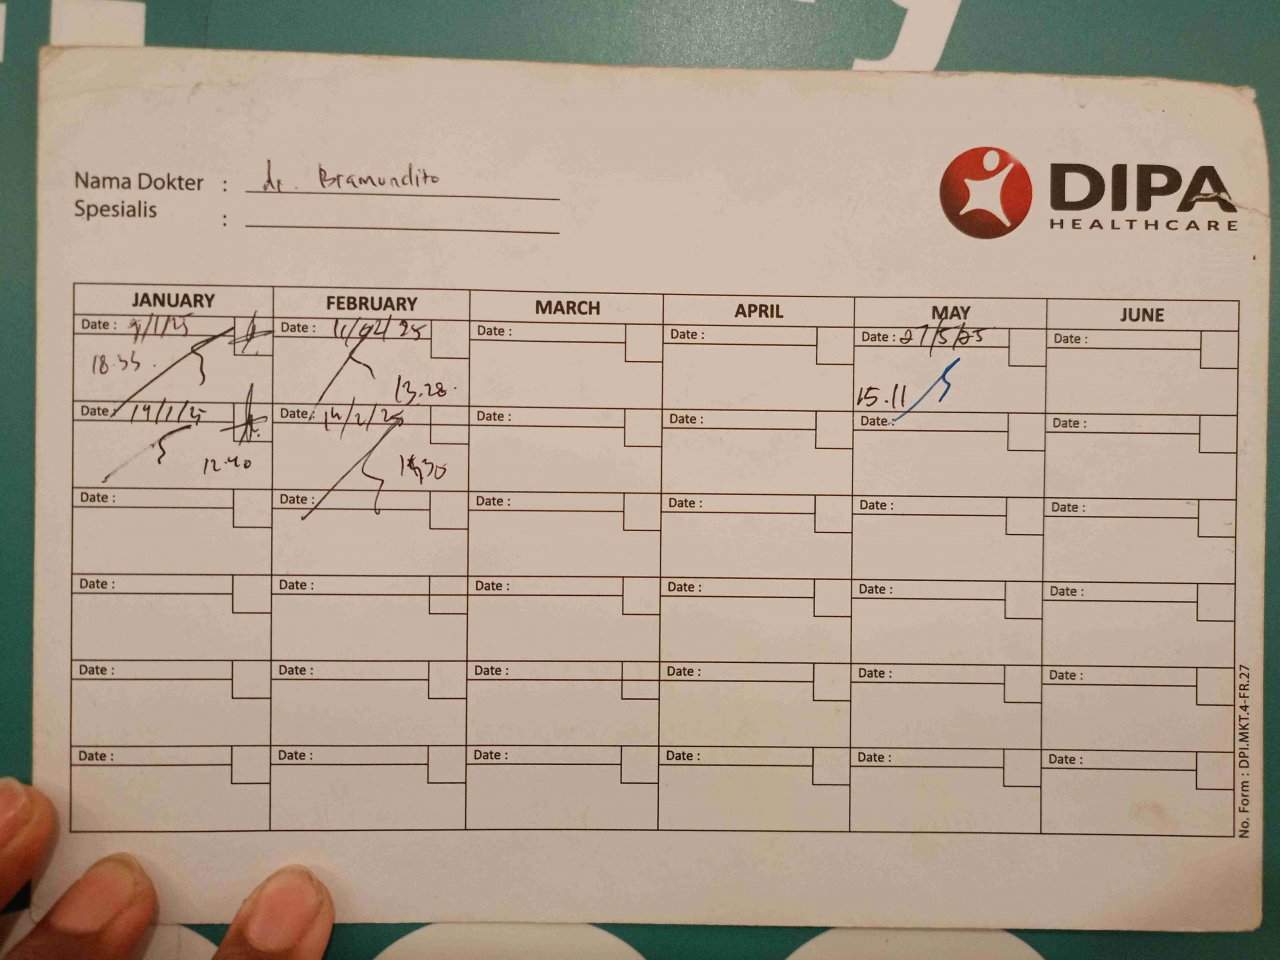 Nama Dokter : dr. Bramundito
Spesialis :
DIPA
HEALTHCARE
JANUARY FEBRUARY MARCH APRIL MAY JUNE
Date : 9/1/25 Date : 11/02/25 Date : Date : Date : 27/5/25 Date :
18.33 13.28 15.11
Date : 14/1/25 Date : 14/2/25 Date : Date : Date : Date :
12.40
Date : Date : Date : Date : Date : Date :
Date : Date : Date : Date : Date : Date :
Date : Date : Date : Date : Date : Date :
Date : Date : Date : Date : Date : Date :
No. Form : DPI.MKT.4-FR.27